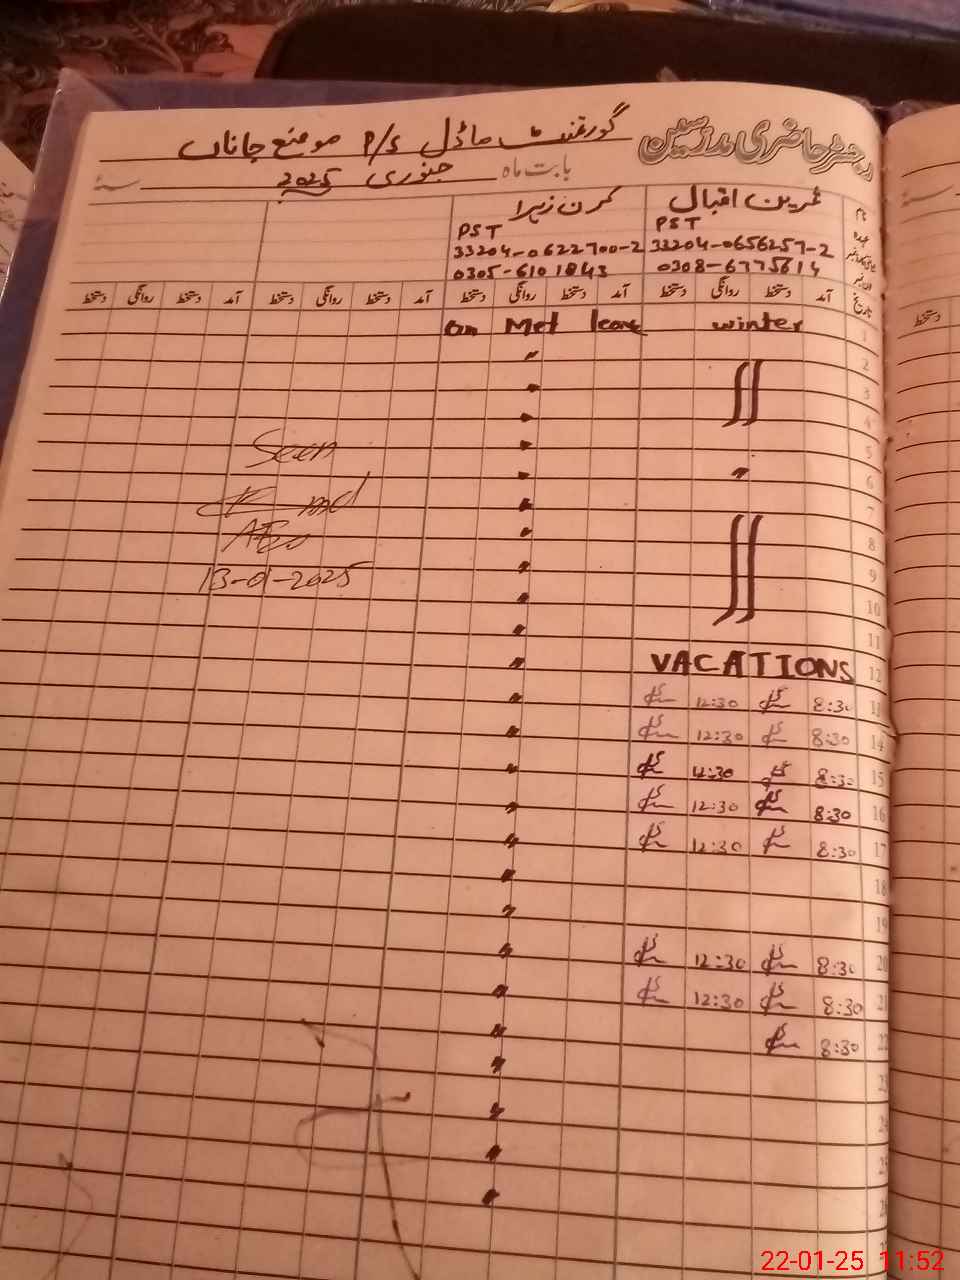 رجسٹر حاضری مدرسین
گورنمنٹ ماڈل P/S موضع جاناں
بابت ماہ جنوری 2025 سنہ
نام ثمرین اقبال کرن زہرا
عہدہ PST PST
33204-0656257-2 33204-0622700-2
0308-6775614 0305-6101843
تاریخ آمد دستخط روانگی دستخط آمد دستخط روانگی دستخط آمد دستخط روانگی دستخط آمد دستخط روانگی دستخط
1 winter on Met leave
2 "
3 "
4 "
5 "
6 " "
7 "
8 "
9 "
10 "
11 "
12 VACATIONS "
13 8:30 12:30 "
14 8:30 12:30 "
15 8:30 12:30 "
16 8:30 12:30 "
17 8:30 12:30 "
18 "
19 "
20 8:30 12:30 "
21 8:30 12:30 "
22 8:30 "
23 "
24 "
25 "
26 "
Seen
AEO
13-01-2025
دستخط
22-01-25 11:52